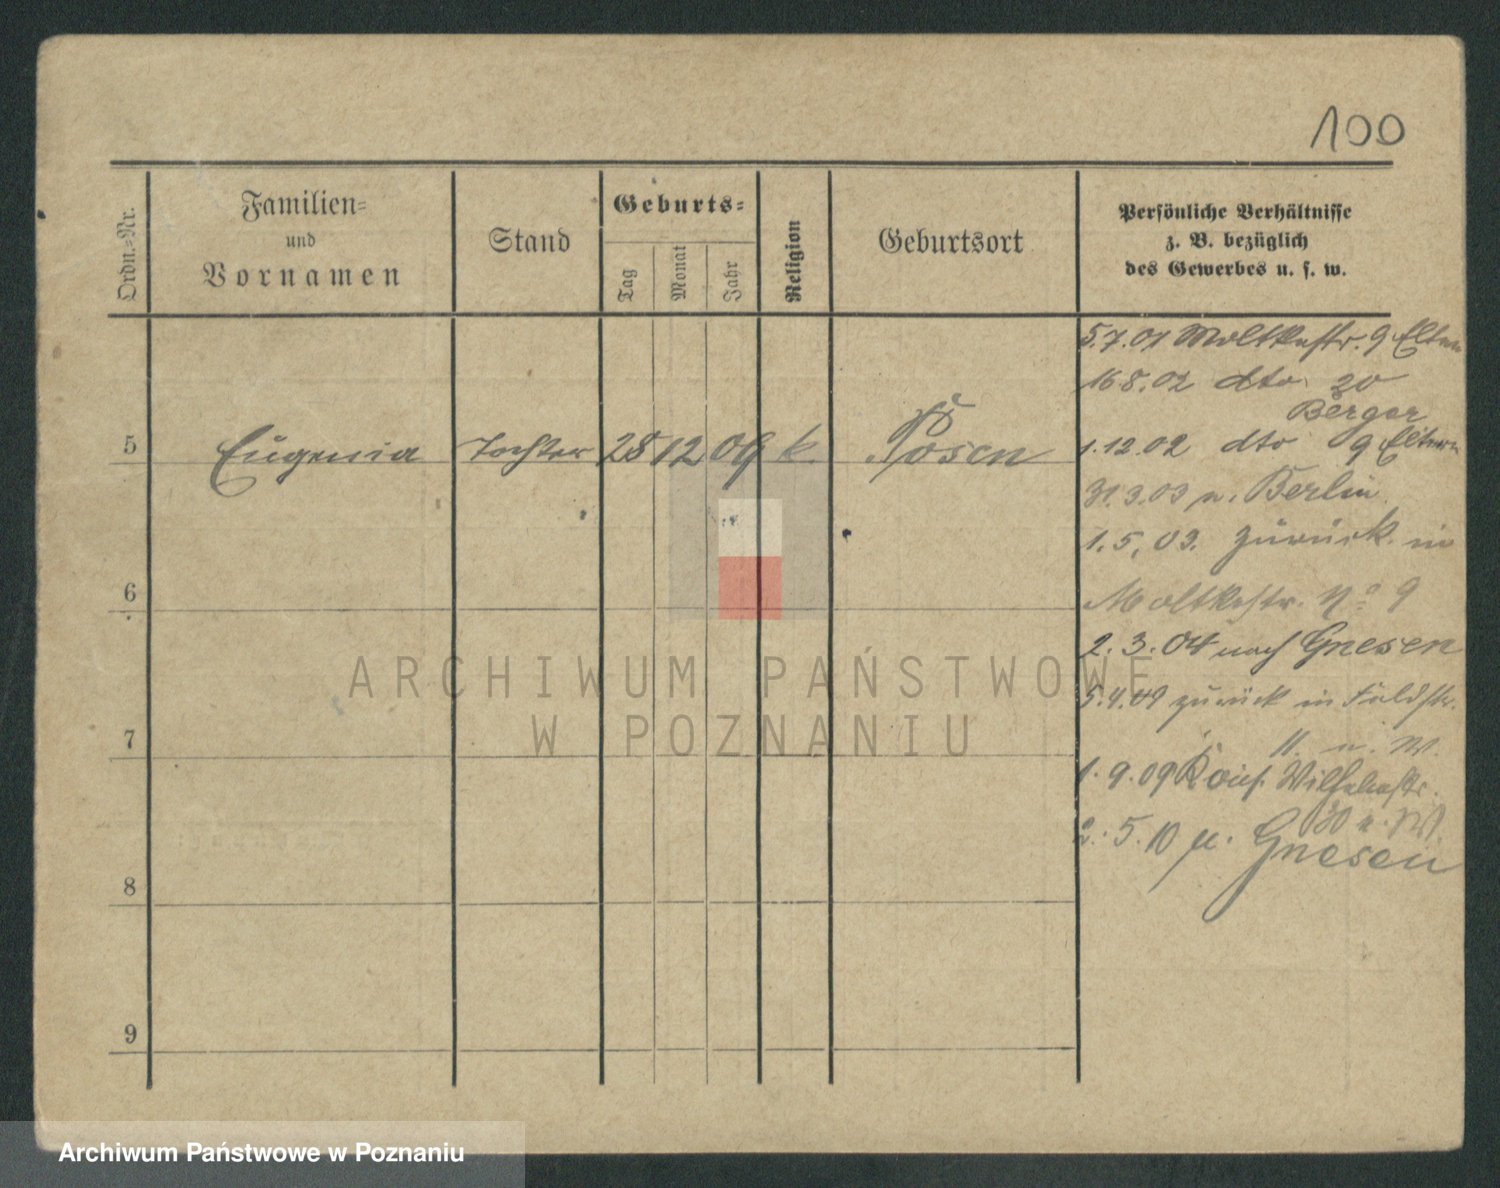 100
Ordn.-Nr.
Familien-
und
Vornamen
Stand
Geburts-
Tag
Monat
Jahr
Religion
Geburtsort
Persönliche Verhältnisse
z. B. bezüglich
des Gewerbes u. s. w.
5 Eugenia Tochter 28 12 09 k. Posen
6
7
8
9
5.7.01 Moltkestr. 9 Eltern
16.8.02 dto 20
Berger
1.12.02 dto 9 Eltern
31.3.03 n. Berlin
1.5.03. zurück in
Moltkestr. No 9
2.3.04 nach Gnesen
5.4.09 zurück in
11
1.9.09
2.5.10 Gnesen
ARCHIWUM PAŃSTWOWE
W POZNANIU
Archiwum Państwowe w Poznaniu